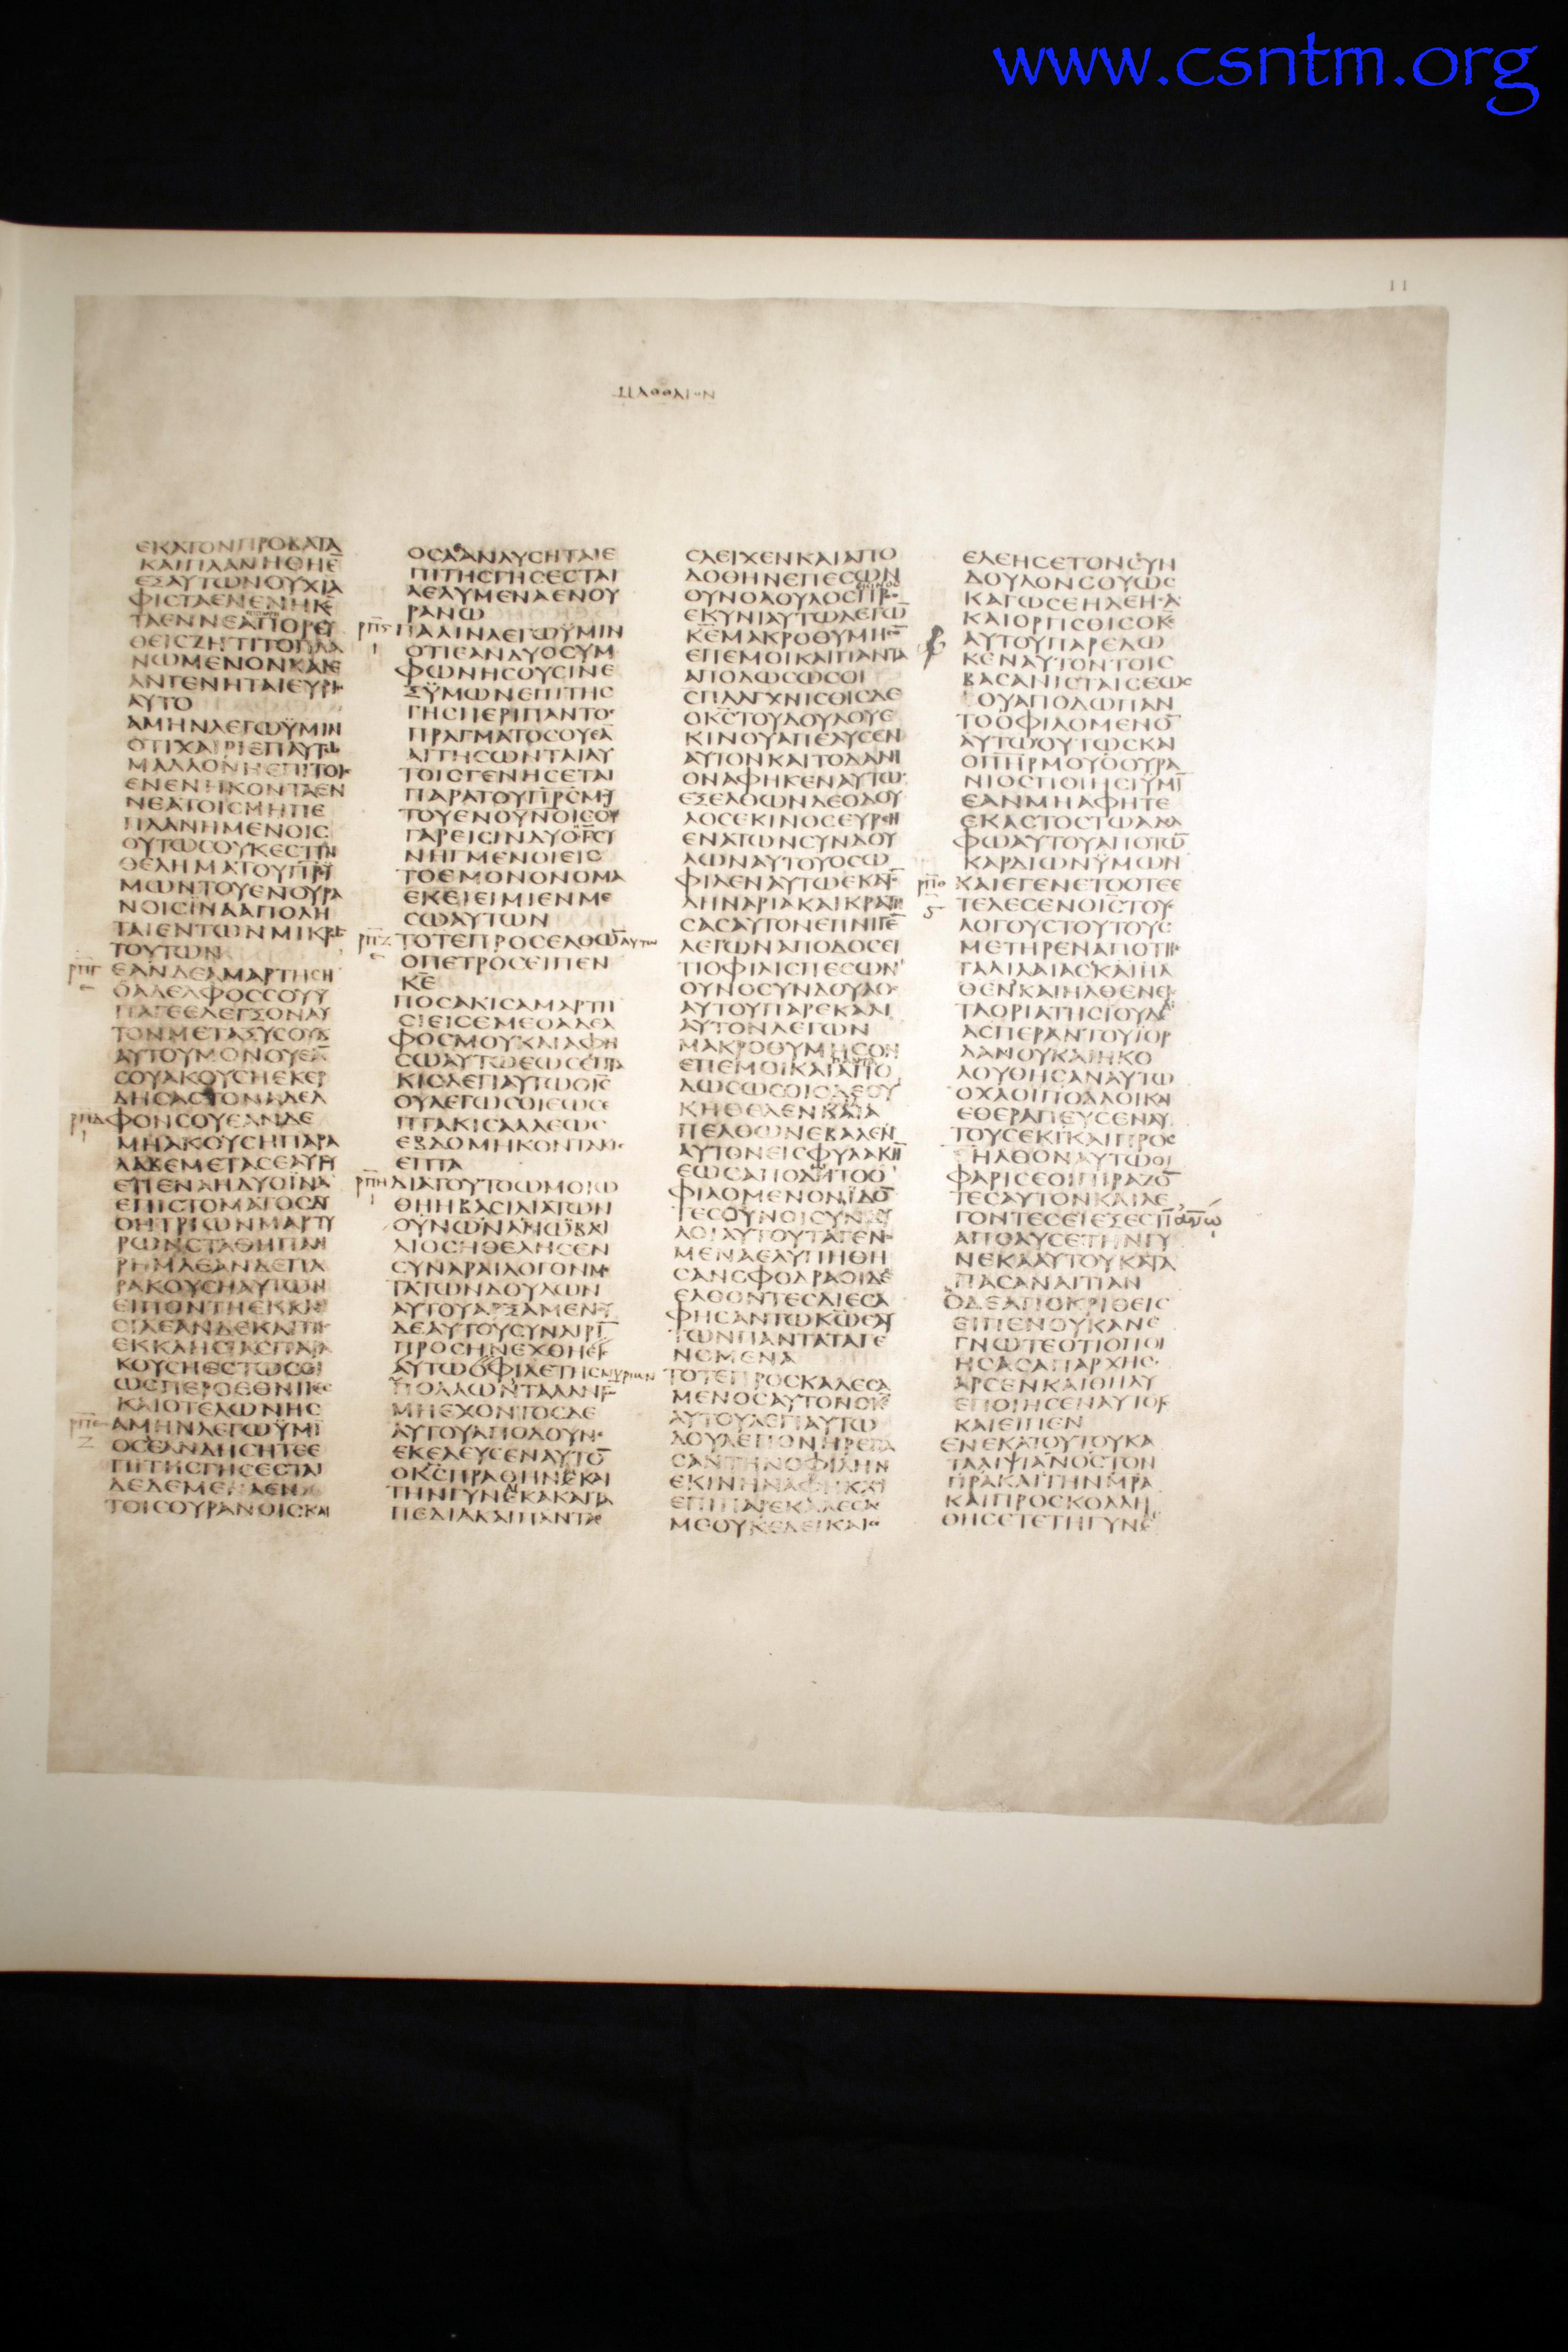 www.csntm.org
11
ΜΑΘΘΑΙΟΝ
ΕΚΑΤΟΝΠΡΟΒΑΤΑ
ΚΑΙΠΛΑΝΗΘΗΕ̅
ΕΞΑΥΤΩΝΟΥΧΙΑ
ΦΙΣΤΑΕΝΕΝΗΚΕ̅
ΘΕΙΣΖΗΤΙΤΟΠΛΑ
ΝΩΜΕΝΟΝΚΑΙΕ
ΑΝΓΕΝΗΤΑΙΕΥΡΙ
ΑΥΤΟ
ΑΜΗΝΛΕΓΩΫΜΙΝ
ΟΤΙΧΑΙΡΙΕΠΑΥΤΩ
ΜΑΛΛΟΝΗΕΠΙΤΟΙΣ
ΕΝΕΝΗΚΟΝΤΑΕΝ
ΝΕΑΤΟΙΣΜΗΠΕ
ΠΛΑΝΗΜΕΝΟΙΣ
ΟΥΤΩΣΟΥΚΕΣΤΙΝ
ΘΕΛΗΜΑΤΟΥΠΡΣ
ΜΩΝΤΟΥΕΝΟΥΡΑ
ΝΟΙΣΪΝΑΑΠΟΛΗ
ΤΑΙΕΝΤΩΝΜΙΚΡΩ
ΤΟΥΤΩΝ
ΕΑΝΔΕΑΜΑΡΤΗΣΗ
ΟΑΔΕΛΦΟΣΣΟΥΥ
ΠΑΓΕΕΛΕΓΞΟΝΑΥ
ΤΟΝΜΕΤΑΞΥΣΟΥΚ
ΑΥΤΟΥΜΟΝΟΥΕΑ̅
ΣΟΥΑΚΟΥΣΗΕΚΕΡ
ΔΗΣΑΣΤΟΝΑΔΕΛ
ΦΟΝΣΟΥΕΑΝΔΕ
ΜΗΑΚΟΥΣΗΠΑΡΑ
ΛΑΒΕΜΕΤΑΣΕΑΥΤΟΥ
ΕΤΙΕΝΑΗΔΥΟΪΝΑ
ΕΠΙΣΤΟΜΑΤΟΣΔΥ
ΟΗΤΡΙΩΝΜΑΡΤΥ
ΡΩΝΣΤΑΘΗΠΑΝ
ΡΗΜΑΕΑΝΔΕΠΑ
ΡΑΚΟΥΣΗΑΥΤΩΝ
ΕΙΠΟΝΤΗΕΚΚΛΗ
ΣΙΑΕΑΝΔΕΚΑΙΤΗΣ
ΕΚΚΛΗΣΙΑΣΠΑΡΑ
ΚΟΥΣΗΕΣΤΩΣΟΙ
ΩΣΠΕΡΟΕΘΝΙΚΟΣ
ΚΑΙΟΤΕΛΩΝΗΣ
ΑΜΗΝΛΕΓΩΫΜΙ̅
ΟΣΑΕΑΝΔΗΣΗΤΕΕ
ΠΙΤΗΣΓΗΣΕΣΤΑΙ
ΔΕΔΕΜΕΝΑΕΝ
ΤΟΙΣΟΥΡΑΝΟΙΣΚΑΙ
ΟΣΑΑΝΛΥΣΗΤΑΙΕ
ΠΙΤΗΣΓΗΣΕΣΤΑΙ
ΛΕΛΥΜΕΝΑΕΝΟΥ
ΡΑΝΩ
ΠΑΛΙΝΛΕΓΩΫΜΙΝ
ΟΤΙΕΑΝΔΥΟΣΥΜ
ΦΩΝΗΣΟΥΣΙΝΕ
ΞΫΜΩΝΕΠΙΤΗΣ
ΓΗΣΠΕΡΙΠΑΝΤΟΣ
ΠΡΑΓΜΑΤΟΣΟΥΕΑ̅
ΑΙΤΗΣΩΝΤΑΙΑΥ
ΤΟΙΣΓΕΝΗΣΕΤΑΙ
ΠΑΡΑΤΟΥΠΡ̅ΣΜΟΥ
ΤΟΥΕΝΟΥΝΟΙΣΟΥ
ΓΑΡΕΙΣΙΝΔΥΟΗΤΡΙΣ
ΝΗΓΜΕΝΟΙΕΙΣ
ΤΟΕΜΟΝΟΝΟΜΑ
ΕΚΕΙΕΙΜΙΕΝΜΕ
ΣΩΑΥΤΩΝ
ΤΟΤΕΠΡΟΣΕΛΘΩ̅ΑΥΤΩ
ΟΠΕΤΡΟΣΕΙΠΕΝ
ΚΕ̅
ΠΟΣΑΚΙΣΑΜΑΡΤΗ
ΣΙΕΙΣΕΜΕΟΑΔΕΛ
ΦΟΣΜΟΥΚΑΙΑΦΗ
ΣΩΑΥΤΩΕΩΣΕΠΤΑ
ΚΙΣΛΕΓΙΑΥΤΩΟΙΣ
ΟΥΛΕΓΩΣΟΙΕΩΣΕ
ΠΤΑΚΙΣΑΛΛΕΩΣ
ΕΒΔΟΜΗΚΟΝΤΑΚΙΣ
ΕΠΤΑ
ΔΙΑΤΟΥΤΟΩΜΟΙΩ
ΘΗΗΒΑΣΙΛΙΑΤΩΝ
ΟΥΝΩΝΑΝΩΒΑΣΙ
ΛΙΟΣΗΘΕΛΗΣΕΝ
ΣΥΝΑΡΑΙΛΟΓΟΝΜΕ
ΤΑΤΩΝΔΟΥΛΩΝ
ΑΥΤΟΥΑΡΞΑΜΕΝΟΥ
ΔΕΑΥΤΟΥΣΥΝΑΙΡΙ̅
ΠΡΟΣΗΝΕΧΘΗΕΙΣ
ΑΥΤΩΟΦΙΛΕΤΗΣΜΥΡΙΩΝ
ΠΟΛΛΩΝΤΑΛΑΝΤ
ΜΗΕΧΟΝΤΟΣΔΕ
ΑΥΤΟΥΑΠΟΔΟΥΝΑΙ
ΕΚΕΛΕΥΣΕΝΑΥΤΟ̅
ΟΚΣ̅ΠΡΑΘΗΝΕΚΑΙ
ΤΗΝΓΥΝΕΚΑΚΑΙΤΑ
ΠΕΔΙΑΚΑΙΠΑΝΤΑ
ΣΑΕΙΧΕΝΚΑΙΑΠΟ
ΔΟΘΗΝΕΠΕΣΩΝ
ΟΥΝΟΔΟΥΛΟΣΠΡΟΣ
ΕΚΥΝΙΑΥΤΩΛΕΓΩ̅
ΚΕ̅ΜΑΚΡΟΘΥΜΗΣΟ̅
ΕΠΕΜΟΙΚΑΙΠΑΝΤΑ
ΑΠΟΔΩΣΩΣΟΙ
ΣΠΛΑΓΧΝΙΣΘΙΣΔΕ
ΟΚΣ̅ΤΟΥΔΟΥΛΟΥΕ
ΚΙΝΟΥΑΠΕΛΥΣΕΝ
ΑΥΤΟΝΚΑΙΤΟΔΑΝΙ
ΟΝΑΦΗΚΕΝΑΥΤΩ
ΕΞΕΛΘΩΝΔΕΟΔΟΥ
ΛΟΣΕΚΙΝΟΣΕΥΡΕΝ
ΕΝΑΤΩΝΣΥΝΔΟΥ
ΛΩΝΑΥΤΟΥΟΣΩ
ΦΙΛΕΝΑΥΤΩΕΚΑΤΟ̅
ΔΗΝΑΡΙΑΚΑΙΚΡΑΤΗ
ΣΑΣΑΥΤΟΝΕΠΝΙΓΕ̅
ΛΕΓΩΝΑΠΟΔΟΣΕΙ
ΤΙΟΦΙΛΙΣΠΕΣΩΝ
ΟΥΝΟΣΥΝΔΟΥΛΟΣ
ΑΥΤΟΥΠΑΡΕΚΑΛΙ
ΑΥΤΟΝΛΕΓΩΝ
ΜΑΚΡΟΘΥΜΗΣΟΝ
ΕΠΕΜΟΙΚΑΙΑΠΟ
ΔΩΣΩΣΟΙΟΔΕΟΥ
ΚΗΘΕΛΕΝΚΑΙΑ
ΠΕΛΘΩΝΕΒΑΛΕΝ
ΑΥΤΟΝΕΙΣΦΥΛΑΚΗ̅
ΕΩΣΑΠΟΔΩΤΟΟ
ΦΙΛΟΜΕΝΟΝΪΔΟ̅
ΤΕΣΟΥΝΟΙΣΥΝΔΟΥ
ΛΟΙΑΥΤΟΥΤΑΓΕΝΟ
ΜΕΝΑΕΛΥΠΗΘΗ
ΣΑΝΣΦΟΔΡΑΚΑΙΔΕ
ΕΛΘΟΝΤΕΣΔΙΕΣΑ
ΦΗΣΑΝΤΩΚΩ̅ΕΑΥ
ΤΩΝΠΑΝΤΑΤΑΓΕ
ΝΟΜΕΝΑ
ΤΟΤΕΠΡΟΣΚΑΛΕΣΑ
ΜΕΝΟΣΑΥΤΟΝΟΚΣ̅
ΑΥΤΟΥΛΕΓΙΑΥΤΩ
ΔΟΥΛΕΠΟΝΗΡΕΠΑ
ΣΑΝΤΗΝΟΦΙΛΗΝ
ΕΚΙΝΗΝΑΦΗΚΑΣΟΙ
ΕΠΙΠΑΡΕΚΑΛΕΣΑΣ
ΜΕΟΥΚΕΔΕΙΚΑΙΣΕ
ΕΛΕΗΣΕΤΟΝΣΥΝ
ΔΟΥΛΟΝΣΟΥΩΣ
ΚΑΓΩΣΕΗΛΕΗΣΑ
ΚΑΙΟΡΓΙΣΘΙΣΟΚΣ̅
ΑΥΤΟΥΠΑΡΕΔΩ
ΚΕΝΑΥΤΟΝΤΟΙΣ
ΒΑΣΑΝΙΣΤΑΙΣΕΩΣ
ΟΥΑΠΟΔΩΠΑΝ
ΤΟΟΦΙΛΟΜΕΝΟ̅
ΑΥΤΩΟΥΤΩΣΚΑΙ
ΟΠΗΡΜΟΥΟΟΥΡΑ
ΝΙΟΣΠΟΙΗΣΙΥΜΙ̅
ΕΑΝΜΗΑΦΗΤΕ
ΕΚΑΣΤΟΣΤΩΑΔΕΛ
ΦΩΑΥΤΟΥΑΠΟΤΩ̅
ΚΑΡΔΙΩΝΫΜΩΝ
ΚΑΙΕΓΕΝΕΤΟΟΤΕΕ
ΤΕΛΕΣΕΝΟΙΣΤΟΥΣ
ΛΟΓΟΥΣΤΟΥΤΟΥΣ
ΜΕΤΗΡΕΝΑΠΟΤΗΣ
ΓΑΛΙΛΑΙΑΣΚΑΙΗΛ
ΘΕΝΚΑΙΗΛΘΕΝΕΙΣ
ΤΑΟΡΙΑΤΗΣΙΟΥΔΑΙ
ΑΣΠΕΡΑΝΤΟΥΪΟΡ
ΔΑΝΟΥΚΑΙΗΚΟ
ΛΟΥΘΗΣΑΝΑΥΤΩ
ΟΧΛΟΙΠΟΛΛΟΙΚΑΙ
ΕΘΕΡΑΠΕΥΣΕΝΑΥ
ΤΟΥΣΕΚΙΚΑΙΠΡΟΣ
ΗΛΘΟΝΑΥΤΩΟΙ
ΦΑΡΙΣΕΟΙΠΙΡΑΖΟ̅
ΤΕΣΑΥΤΟΝΚΑΙΛΕ
ΓΟΝΤΕΣΕΙΕΞΕΣΤΙΑΝΩ
ΑΠΟΛΥΣΕΤΗΝΓΥ
ΝΕΚΑΑΥΤΟΥΚΑΤΑ
ΠΑΣΑΝΑΙΤΙΑΝ
ΟΔΕΑΠΟΚΡΙΘΕΙΣ
ΕΙΠΕΝΟΥΚΑΝΕ
ΓΝΩΤΕΟΤΙΟΠΟΙ
ΗΣΑΣΑΠΑΡΧΗΣ
ΑΡΣΕΝΚΑΙΘΗΛΥ
ΕΠΟΙΗΣΕΝΑΥΤΟΥΣ
ΚΑΙΕΙΠΕΝ
ΕΝΕΚΑΤΟΥΤΟΥΚΑ
ΤΑΛΙΨΙΑΝΟΣΤΟΝ
ΠΡΑΚΑΙΤΗΝΜΡΑ
ΚΑΙΠΡΟΣΚΟΛΛΗ
ΘΗΣΕΤΕΤΗΓΥΝΕ